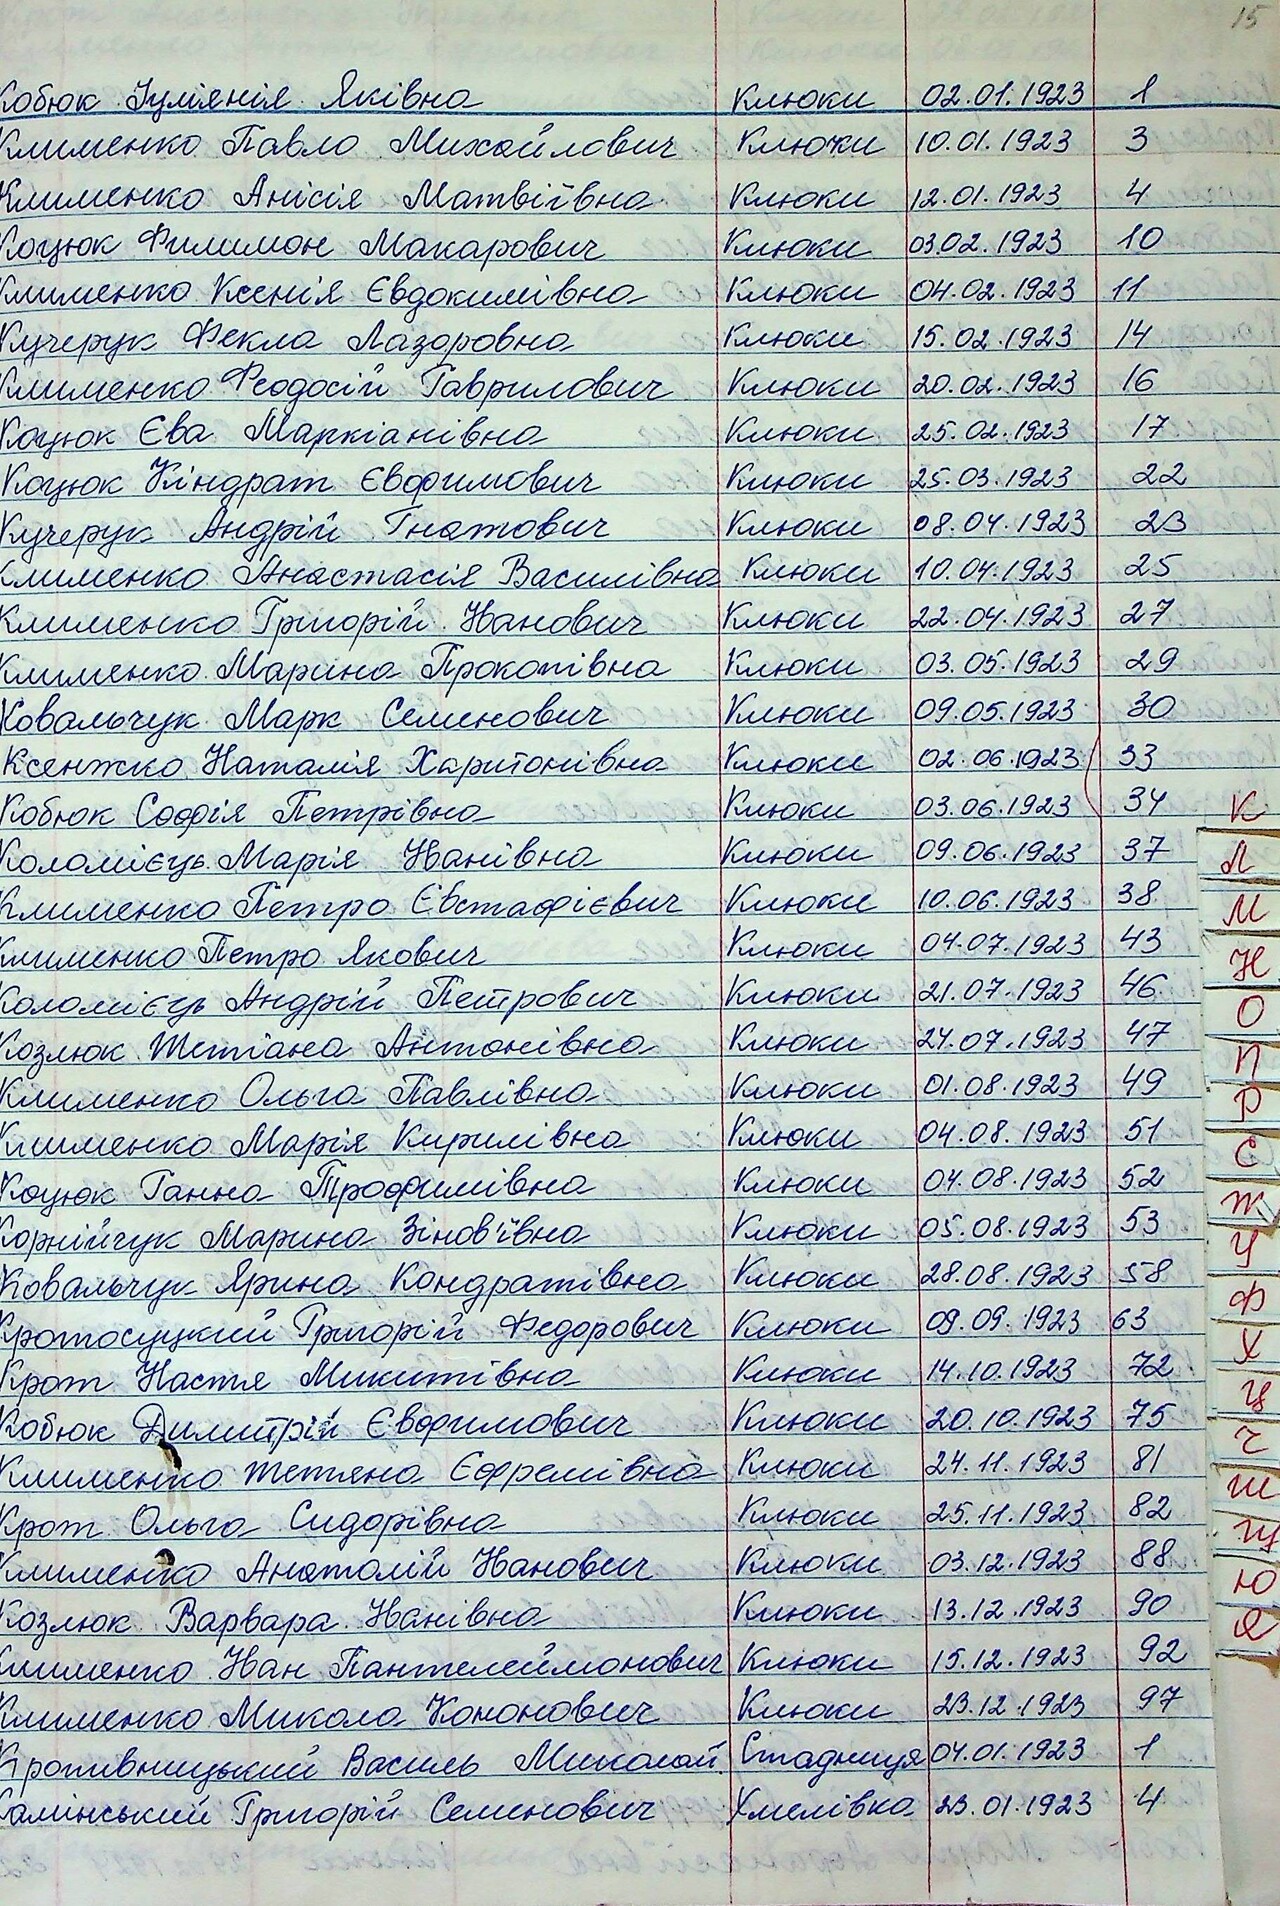 15
Кобюк Іуліянія Яківна Клюки 02.01.1923 1
Клименко Павло Михайлович Клюки 10.01.1923 3
Клименко Анісія Матвіївна Клюки 12.01.1923 4
Коцюк Филимон Макарович Клюки 03.02.1923 10
Клименко Ксенія Євдокимівна Клюки 04.02.1923 11
Кучерук Фекла Лазоровна Клюки 15.02.1923 14
Клименко Феодосій Гаврилович Клюки 20.02.1923 16
Коцюк Єва Маркіанівна Клюки 25.02.1923 17
Коцюк Кіндрат Євфимович Клюки 25.03.1923 22
Кучерук Андрій Гнатович Клюки 08.04.1923 23
Клименко Анастасія Василівна Клюки 10.04.1923 25
Клименко Григорій Іванович Клюки 22.04.1923 27
Клименко Марина Прокопівна Клюки 03.05.1923 29
Ковальчук Марк Семенович Клюки 09.05.1923 30
Ксенжко Наталія Харитонівна Клюки 02.06.1923 33
Кобюк Софія Петрівна Клюки 03.06.1923 34
К
Коломієць Марія Іванівна Клюки 09.06.1923 37
Л
Клименко Петро Євстафієвич Клюки 10.06.1923 38
М
Клименко Петро Якович Клюки 04.07.1923 43
Н
Коломієць Андрій Петрович Клюки 21.07.1923 46
О
Козлюк Тетіана Антонівна Клюки 24.07.1923 47
П
Клименко Ольга Павлівна Клюки 01.08.1923 49
Р
Клименко Марія Кирилівна Клюки 04.08.1923 51
С
Коцюк Ганна Трофимівна Клюки 04.08.1923 52
Т
Корнійчук Марина Зінов'ївна Клюки 05.08.1923 53
У
Ковальчук Ярина Кондратівна Клюки 28.08.1923 58
Ф
Кротосуцкий Григорій Федорович Клюки 09.09.1923 63
Х
Крот Настя Микитівна Клюки 14.10.1923 72
Ц
Кобюк Димитрій Євфимович Клюки 20.10.1923 75
Ч
Клименко Тетяна Єфремівна Клюки 24.11.1923 81
Ш
Крот Ольга Сидорівна Клюки 25.11.1923 82
Щ
Клименко Анатолій Іванович Клюки 03.12.1923 88
Ю
Козлюк Варвара Іванівна Клюки 13.12.1923 90
Я
Клименко Іван Пантелеймонович Клюки 15.12.1923 92
Клименко Микола Кононович Клюки 23.12.1923 97
Кропивницький Василь Миколай. Стадниця 04.01.1923 1
Камінський Григорій Семенович Хмелівка 23.01.1923 4